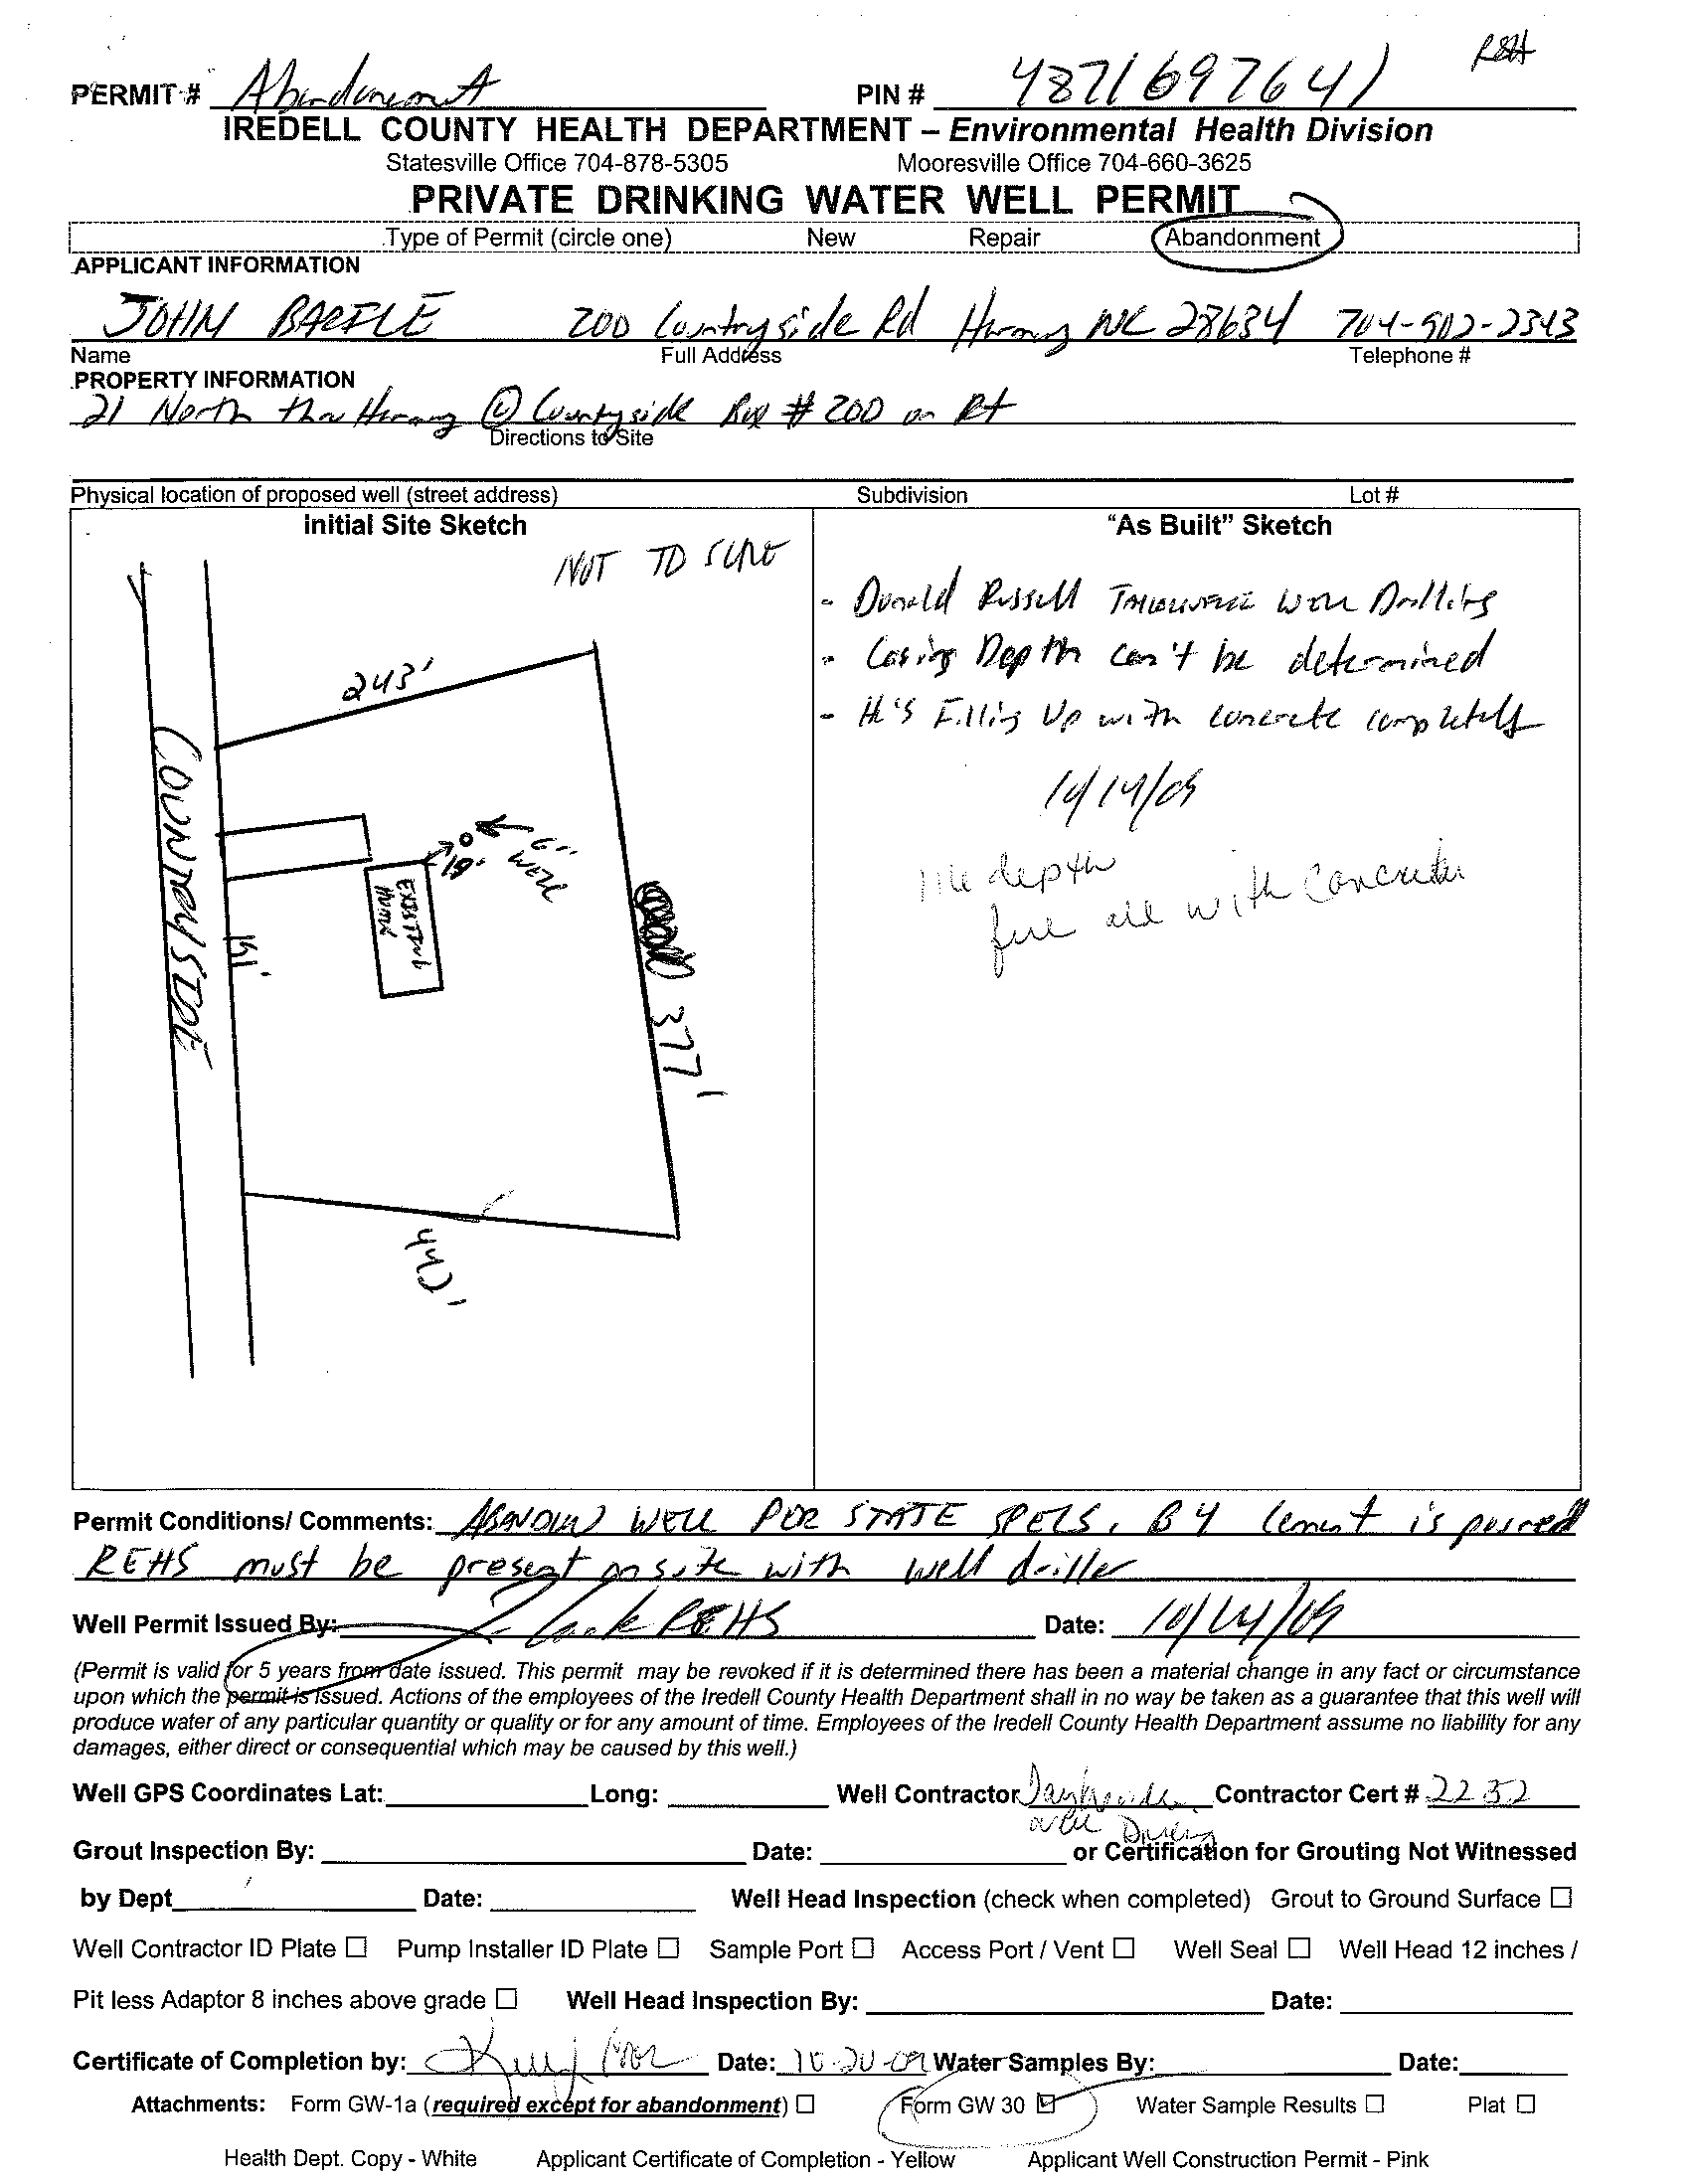 R&H
PERMIT # Abandonment PIN # 4871697641
IREDELL COUNTY HEALTH DEPARTMENT – Environmental Health Division
Statesville Office 704-878-5305 Mooresville Office 704-660-3625
PRIVATE DRINKING WATER WELL PERMIT
Type of Permit (circle one) New Repair Abandonment
APPLICANT INFORMATION
JOHN 200 Countryside Rd Harmony NC 28634 704-902-2343
Name Full Address Telephone #
PROPERTY INFORMATION
21 North thru Harmony @ Countryside Box # 200 on Rt
Directions to Site
Physical location of proposed well (street address) Subdivision Lot #
Initial Site Sketch "As Built" Sketch
NOT TO SCALE
- Donald Russell Well Drilling
- Casing Depth can't be determined
- He's Filling Up with concrete completely
10/14/09
depth
fill all with Concrete
243'
COUNTRYSIDE
6" WELL
19'
EXISTING Home
191'
377'
440'
Permit Conditions/ Comments: ABANDON WELL PER STATE SPECS. B4 Cement is poured
REHS must be present on site with well driller
Well Permit Issued By: REHS Date: 10/14/09
(Permit is valid for 5 years from date issued. This permit may be revoked if it is determined there has been a material change in any fact or circumstance
upon which the permit is issued. Actions of the employees of the Iredell County Health Department shall in no way be taken as a guarantee that this well will
produce water of any particular quantity or quality or for any amount of time. Employees of the Iredell County Health Department assume no liability for any
damages, either direct or consequential which may be caused by this well.)
Well GPS Coordinates Lat: Long: Well Contractor Contractor Cert # 2232
Well Drilling
Grout Inspection By: Date: or Certification for Grouting Not Witnessed
by Dept Date: Well Head Inspection (check when completed) Grout to Ground Surface ☐
Well Contractor ID Plate ☐ Pump Installer ID Plate ☐ Sample Port ☐ Access Port / Vent ☐ Well Seal ☐ Well Head 12 inches /
Pit less Adaptor 8 inches above grade ☐ Well Head Inspection By: Date:
Certificate of Completion by: Kelly Date: 10-20-09 Water Samples By: Date:
Attachments: Form GW-1a (required except for abandonment) ☐ Form GW 30 ☑ Water Sample Results ☐ Plat ☐
Health Dept. Copy - White Applicant Certificate of Completion - Yellow Applicant Well Construction Permit - Pink